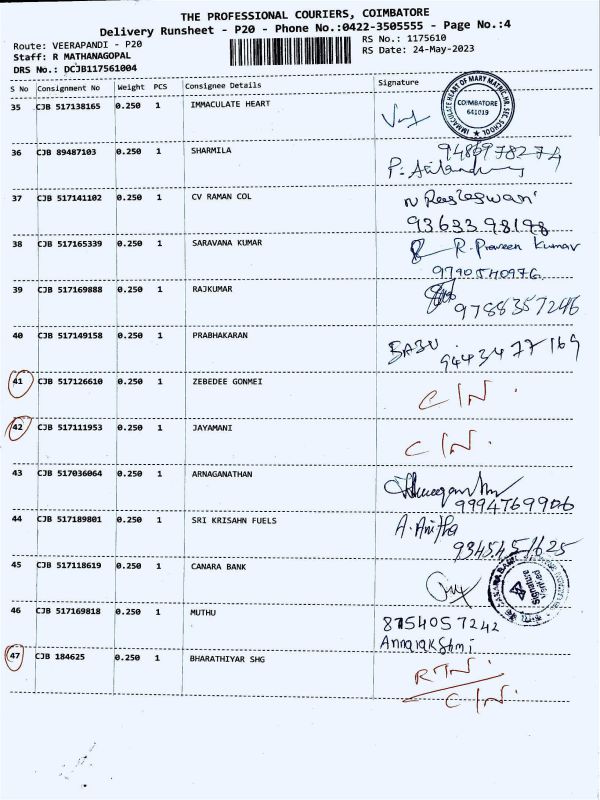 THE PROFESSIONAL COURIERS, COIMBATORE
Delivery Runsheet - P20 - Phone No.:0422-3505555 - Page No.:4
Route: VEERAPANDI - P20
RS No.: 1175610
Staff: R MATHANAGOPAL
RS Date: 24-May-2023
DRS No.: DCJB117561004
S No Consignment No Weight PCS Consignee Details Signature
35 CJB 517138165 0.250 1 IMMACULATE HEART
IMMACULATE HEART OF MARY MATRIC. HR. SEC. SCHOOL
COIMBATORE
641019
36 CJB 89487103 0.250 1 SHARMILA 9486978274
37 CJB 517141102 0.250 1 CV RAMAN COL
9363398198
38 CJB 517165339 0.250 1 SARAVANA KUMAR R. Praveen Kumar
9790540976
39 CJB 517169888 0.250 1 RAJKUMAR
9788357246
40 CJB 517149158 0.250 1 PRABHAKARAN BABU
9443477169
41 CJB 517126610 0.250 1 ZEBEDEE GONMEI C/N.
42 CJB 517111953 0.250 1 JAYAMANI C/N.
43 CJB 517036064 0.250 1 ARNAGANATHAN
9994769906
44 CJB 517189801 0.250 1 SRI KRISAHN FUELS A. Anitha
9345451625
45 CJB 517118619 0.250 1 CANARA BANK
CANARA BANK
Signature
Verified
46 CJB 517169818 0.250 1 MUTHU 8754057242
Annalakshmi
47 CJB 184625 0.250 1 BHARATHIYAR SHG RTN.
C/N.
Staff: